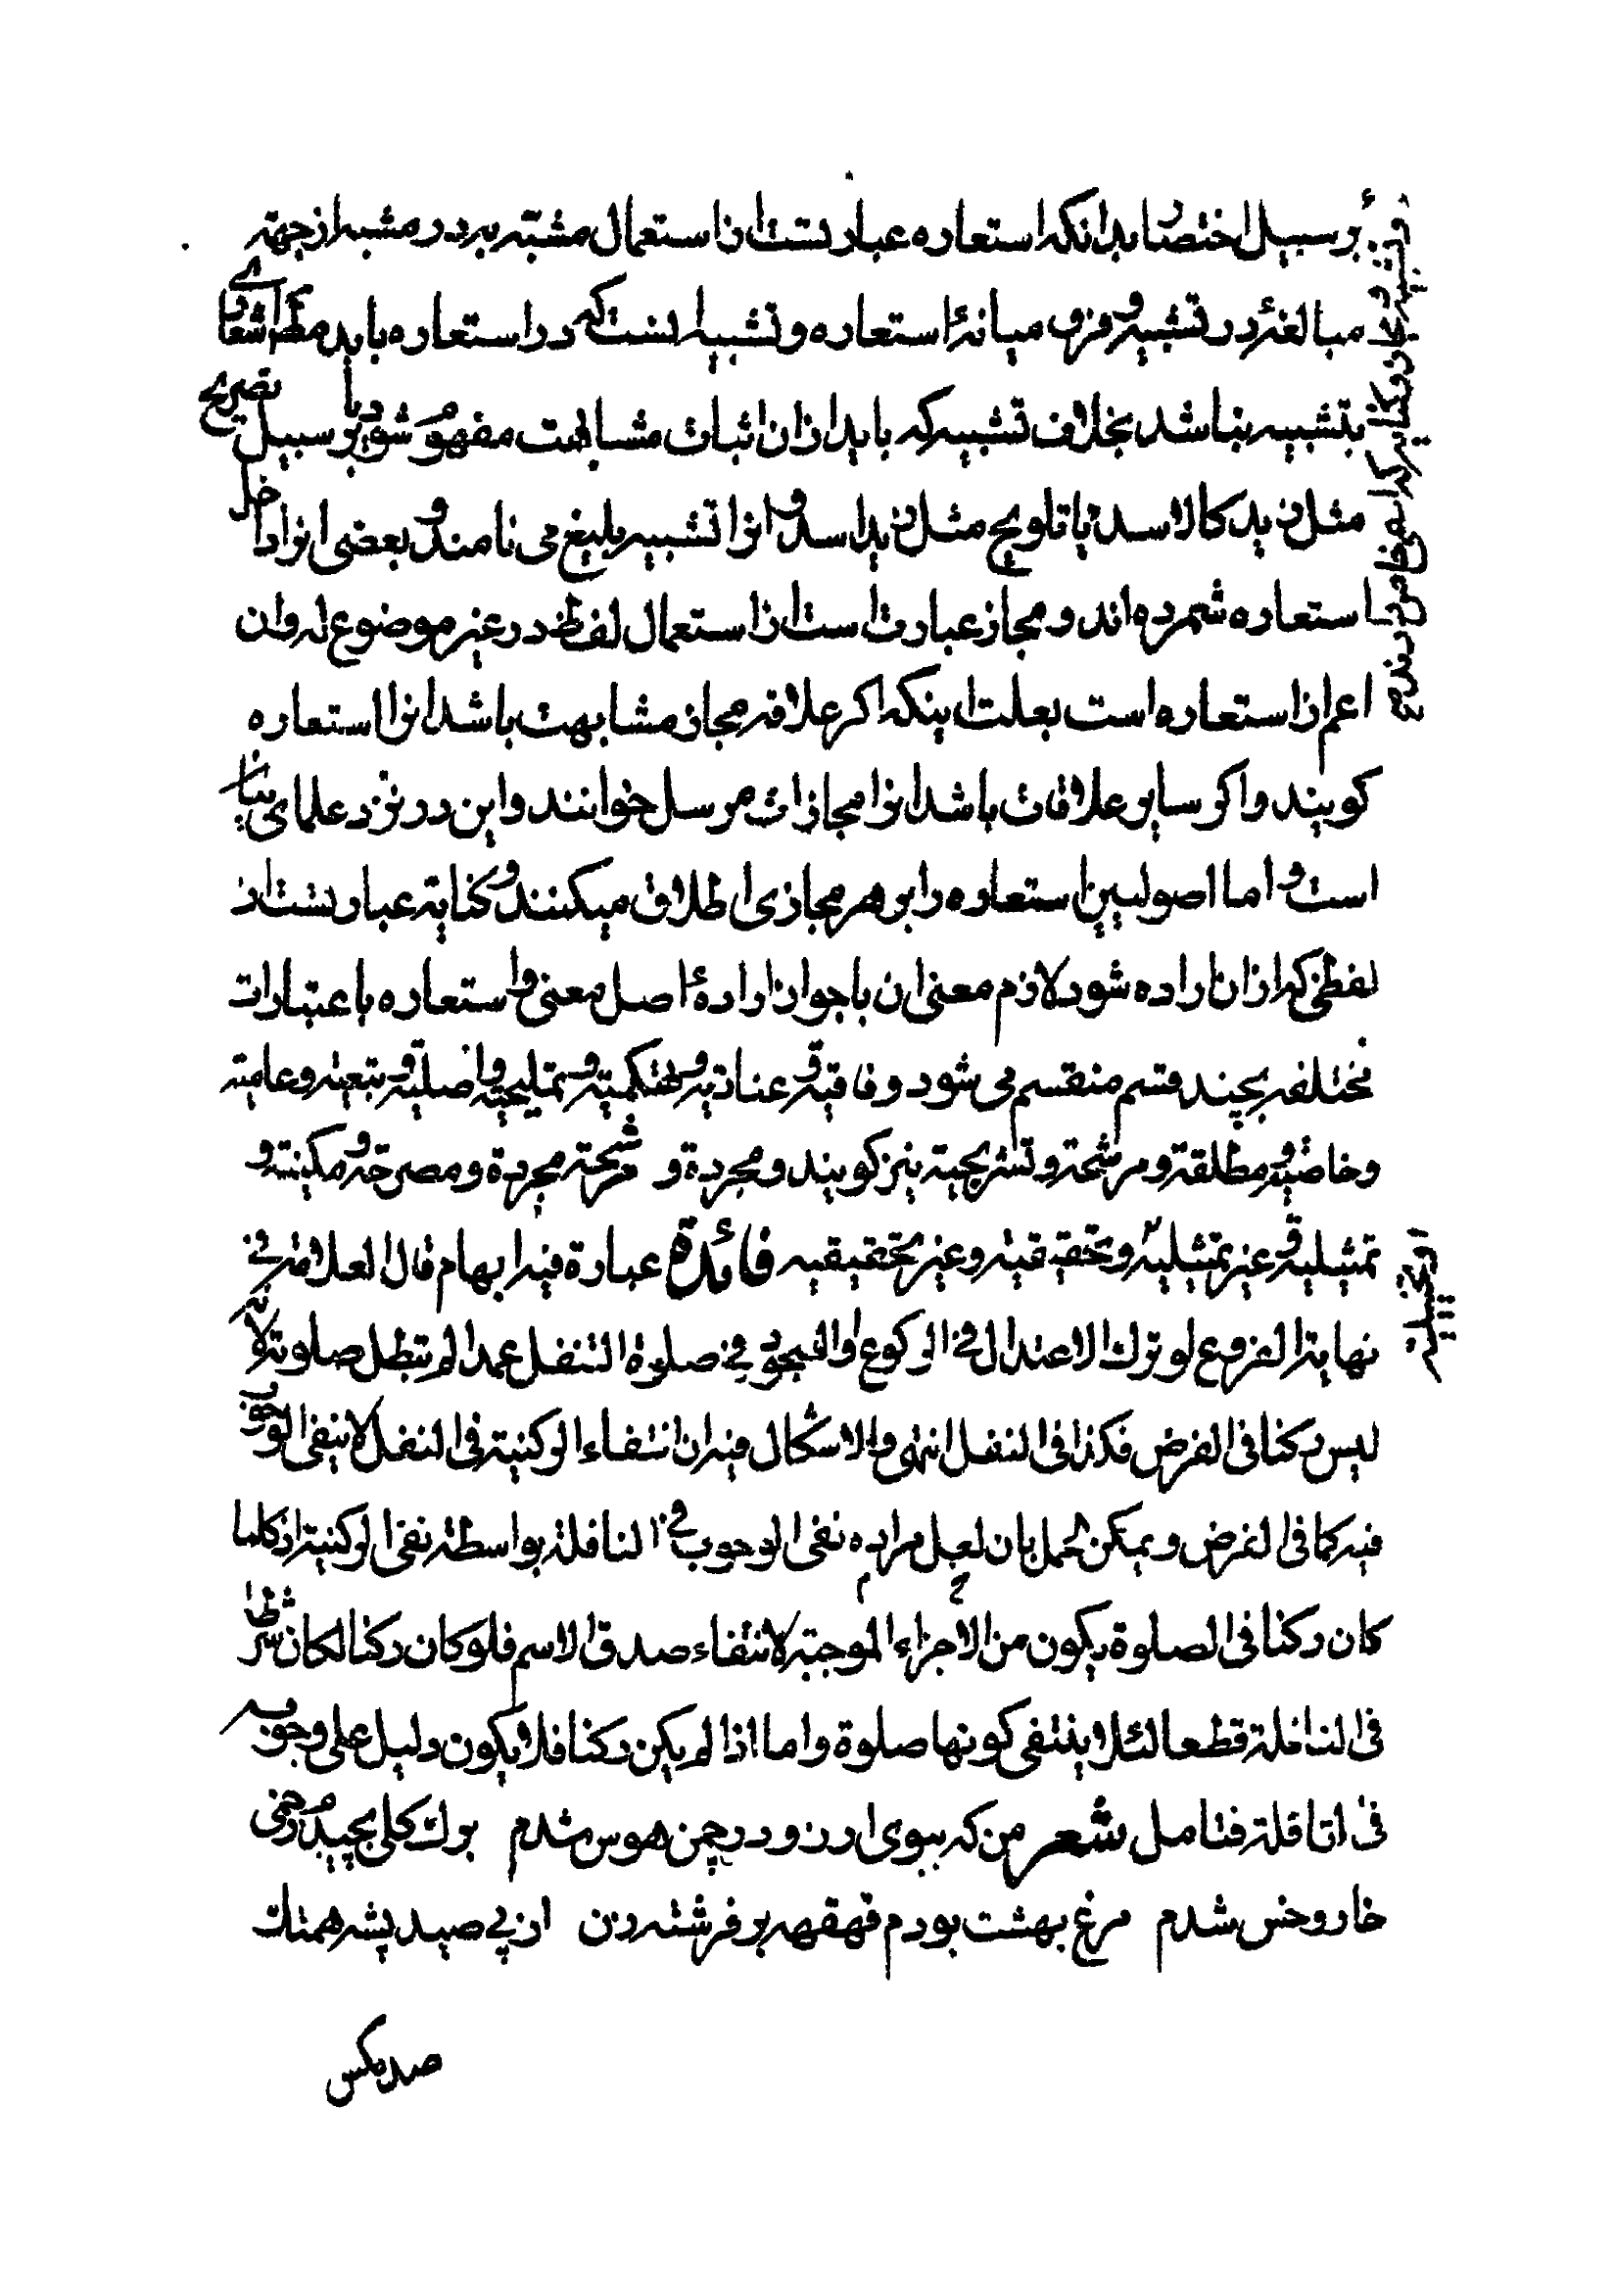 بر سبیل اختصار بدانکه استعاره عبارتست از استعمال مشبّه به در مشبه از جهة
مبالغهٔ در تشبیه و فرق میانهٔ استعاره و تشبیه اینست که در استعاره باید مطلقا اشعاری
بتشبیه نباشد بخلاف تشبیه که باید از ان اثبات مشابهت مفهوم شود یا بر سبیل تصریح
مثل زید کالاسد یا تلویح مثل زید اسد و انرا تشبیه بلیغ می نامند و بعضی انرا داخل
استعاره شمرده اند و مجاز عبارت است از استعمال لفظ در غیر موضوع له و ان
اعم از استعاره است بعلت اینکه اکر علاقه مجاز مشابهت باشد انرا استعاره
کویند و اکر سایر علاقات باشد انرا مجازات مرسل خوانند و این در نزد علمای بیان
است و اما اصولیین استعاره را بر هر مجازی اطلاق میکنند و کنایة عبارتست از
لفظی که از ان اراده شود لازم معنی ان با جواز ارادهٔ اصل معنی و استعاره باعتبارات
مختلفه بچند قسم منقسم می شود وفاقیه و عنادیه و تهکمیّه و تملیحیّه و اصلیّه و تبعیّه و عامیّه
و خاصّیه و مطلقة و مرشحة و ترشیحیة نیز کویند و مجردة و مرشحة مجردة و مصرحة و مکنیّة و
تمثیلیه و غیر تمثیلیّه و تحقیقیّه و غیر تحقیقیه فائدة عبارة فیه ابهام قال العلامة فی
نهایة الفروع لو ترك الاعتدال فی الرکوع او السجود فی صلوة التنفل عمدا لم تبطل صلوته لانّه
لیس رکنا فی الفرض فکذا فی النفل انتهی و الاشکال فیه ان انتفاء الرکنیة فی النفل لا ینفی الوجوب
فیه کما فی الفرض و یمکن الحمل بان لعل مراده نفی الوجوب فی النافلة بواسطة نفی الرکنیة اذ کلما
کان رکنا فی الصلوة یکون من الاجزاء الموجبة لانتفاء صدق الاسم فلو کان رکنا لکان شرطا
فی النافلة قطعا لئلا ینتفی کونها صلوة و اما اذا لم یکن رکنا فلا یکون دلیل علی وجوبه
فی النافلة فتامل شعر من که ببوی ارزو در چمن هوس شدم برك کلی نچیدم و زخمی
خار و خس شدم مرغ بهشت بودم قهقهه بر فرشته زن از پی صید پشه همتك
صد مکس